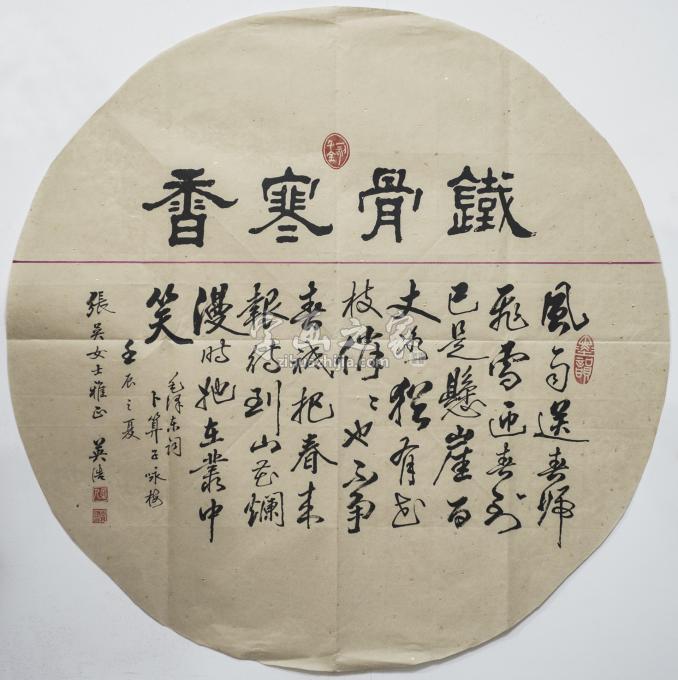 鐵骨寒香
風雨送春歸
飛雪迎春到
已是懸崖百
丈冰猶有花
枝俏〻也不爭
春祗把春来
報待到山花爛
漫時她在叢中
笑
毛澤东詞
卜算子咏梅
壬辰之夏
張吴女士雅正 英浩
一字千金
字画之家
zihuazhijia.com